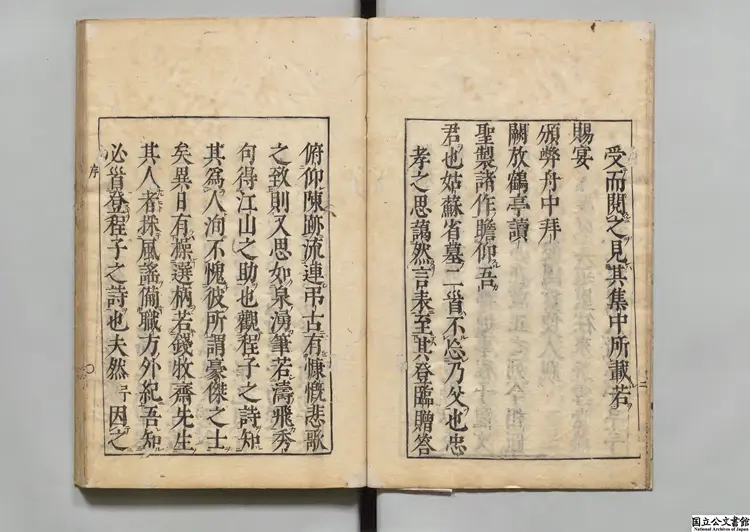 受而閱之見其集中所載若
賜宴
頒弊舟中拜
闕放鶴亭讀
聖製諸作瞻仰吾
君也姑蘇省墓二首不忘乃父也忠
孝之思藹然言表至其登臨贈答
俯仰陳跡流連弔古有慷慨悲歌
之致則又思如泉湧筆若濤飛秀
句得江山之助也觀程子之詩知
其爲人洵不愧彼所謂豪傑之士
矣異日有操選柄若錢牧齋先生
其人者採風謠備職方外紀吾知
必首登程子之詩也夫然 因之
序
国立公文書館
National Archives of Japan